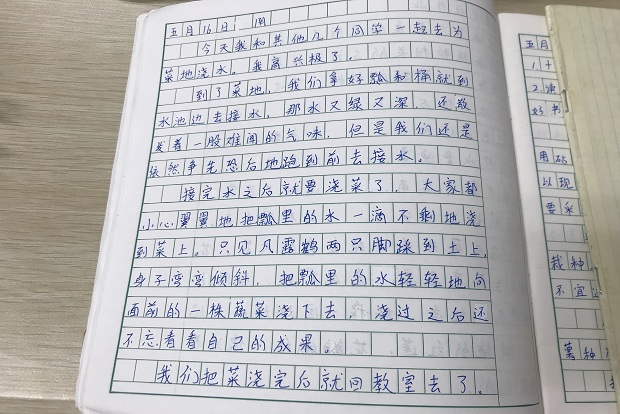 五月16日 周
今天我和其他几个同学一起去为
菜地浇水。我高兴极了。
到了菜地，我们拿好瓢和桶就到
水池边去接水，那水又绿又深，还散
发着一股难闻的气味，但是我们还是
依然争先恐后地跑到前去接水。
接完水之后就要浇菜了，大家都
小心翼翼地把瓢里的水一滴不剩地浇
到菜上。只见风露鹤两只脚踩到土上，
身子弯弯倾斜，把瓢里的水轻轻地向
面前的一株蔬菜浇下去，浇过之后还
不忘看看自己的成果。
我们把菜浇完后就回教室去了。
五月
1.十
2.
好书
用
以现
要采
栽种
不宜
万种